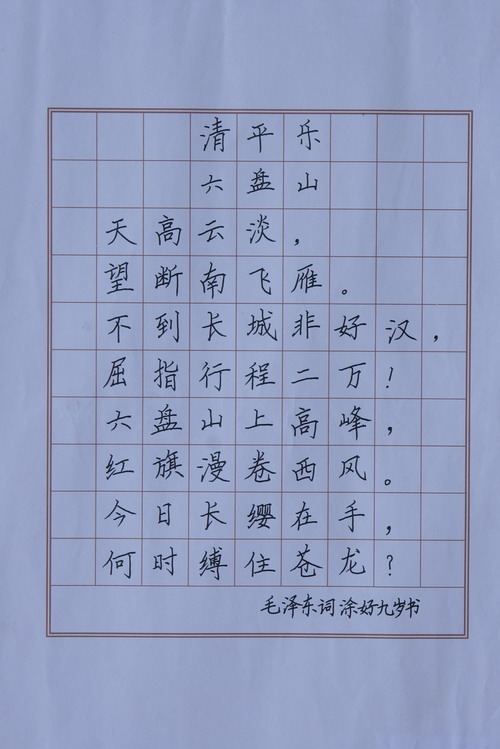 清平乐
六盘山
天高云淡，
望断南飞雁。
不到长城非好汉，
屈指行程二万！
六盘山上高峰，
红旗漫卷西风。
今日长缨在手，
何时缚住苍龙？
毛泽东词涂好九岁书